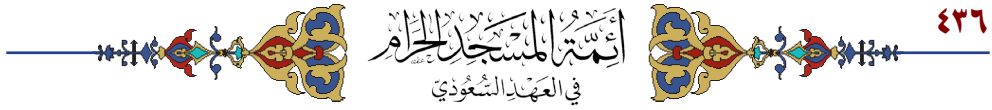 ٤٣٦
أَئِمَّةُ المَسْجِدِ الحَرَامِ
في العَهْدِ السُّعُودِيّ